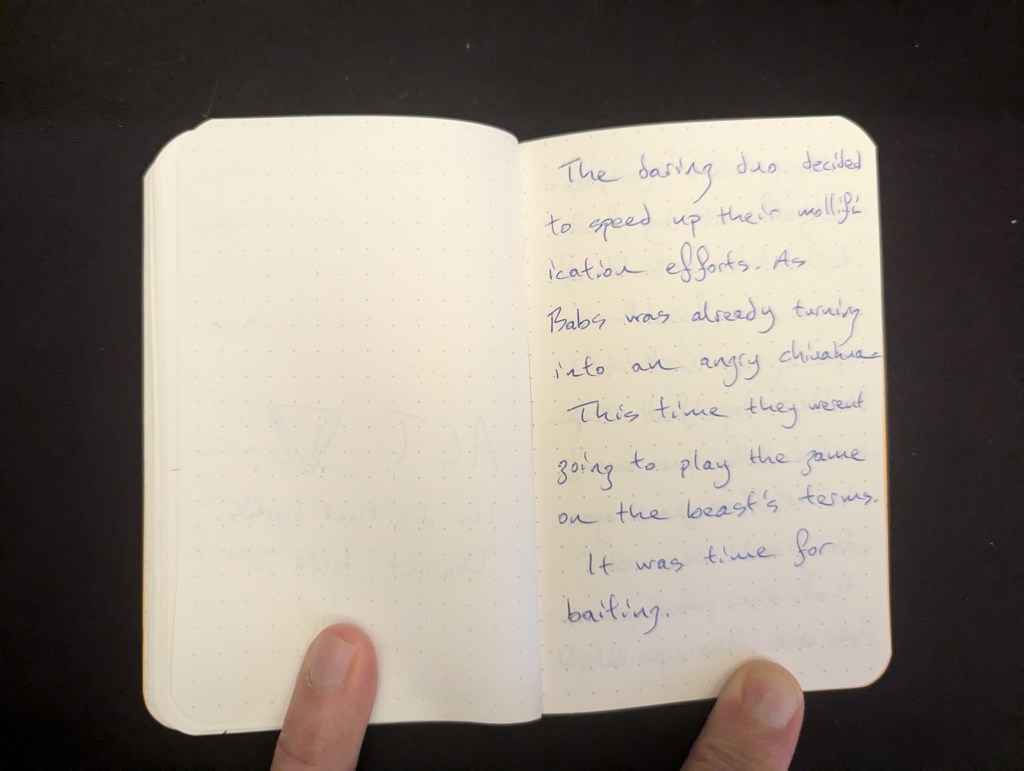 The daring duo decided
to speed up their mollifi
ication efforts. As
Babs was already turning
into an angry chiuahua
This time they werent
going to play the game
on the beast's terms.
It was time for
baiting.